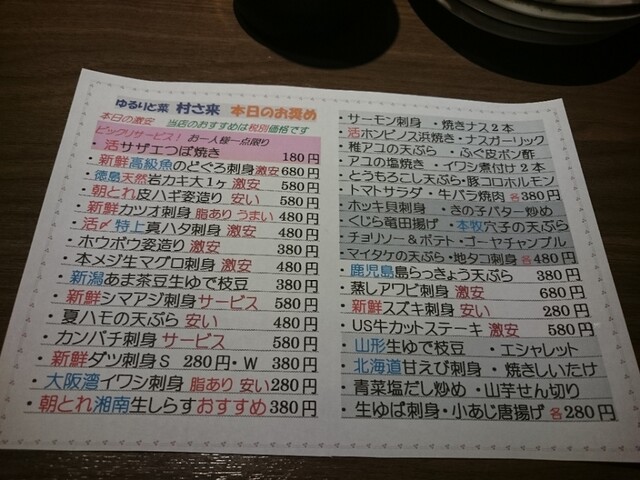 ゆるりと菜 村さ来 本日のお奨め
本日の激安 当店のおすすめは税別価格です
ビックリサービス! お一人様一点限り
・活サザエつぼ焼き 180円
・新鮮高級魚のどぐろ刺身激安680円
・徳島天然岩カキ大1ヶ激安 580円
・朝とれ皮ハギ姿造り 安い 580円
・新鮮カツオ刺身 脂あり うまい 480円
・活〆特上真ハタ刺身 激安 480円
・ホウボウ姿造り 激安 380円
・本メジ生マグロ刺身 激安 480円
・新潟あま茶豆生ゆで枝豆 380円
・新鮮シマアジ刺身サービス 580円
・夏ハモの天ぷら 安い 480円
・カンパチ刺身 サービス 580円
・新鮮ダツ刺身S 280円・W 380円
・大阪湾イワシ刺身 脂あり 安い280円
・朝とれ湘南生しらすおすすめ 380円
・サーモン刺身 ・焼きナス2本
・活ホンビノス浜焼き・ナスガーリック
・稚アユの天ぷら ・ふぐ皮ポン酢
・アユの塩焼き ・イワシ煮付け2本
・とうもろこし天ぷら・豚コロホルモン
・トマトサラダ・牛バラ焼肉 各380円
・ホッキ貝刺身 ・きの子バター炒め
・くじら竜田揚げ ・本牧穴子の天ぷら
・チョリソー&ポテト・ゴーヤチャンプル
・マイタケの天ぷら・地タコ刺身 各480円
・鹿児島島らっきょう天ぷら 380円
・蒸しアワビ刺身 激安 680円
・新鮮スズキ刺身 安い 280円
・US牛カットステーキ 激安 580円
・山形生ゆで枝豆 ・エシャレット
・北海道甘えび刺身 ・焼きしいたけ
・青菜塩だし炒め ・山芋せん切り
・生ゆば刺身・小あじ唐揚げ 各280円